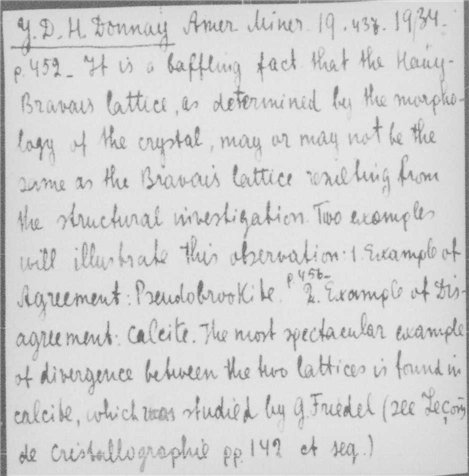 J. D. H. Donnay Amer Miner. 19. 437. 1934.
p. 452_ It is a baffling fact that the Haüy-
Bravais lattice, as determined by the morpho-
logy of the crystal, may or may not be the
same as the Bravais lattice resulting from
the structural investigation. Two examples
will illustrate this observation: 1. Example of
Agreement: Pseudobrookite. p. 456_ 2. Example of Dis-
agreement: Calcite. The most spectacular example
of divergence between the two lattices is found in
calcite, which was studied by G. Friedel (see Leçons
de Cristallographie pp. 142 et seq.)